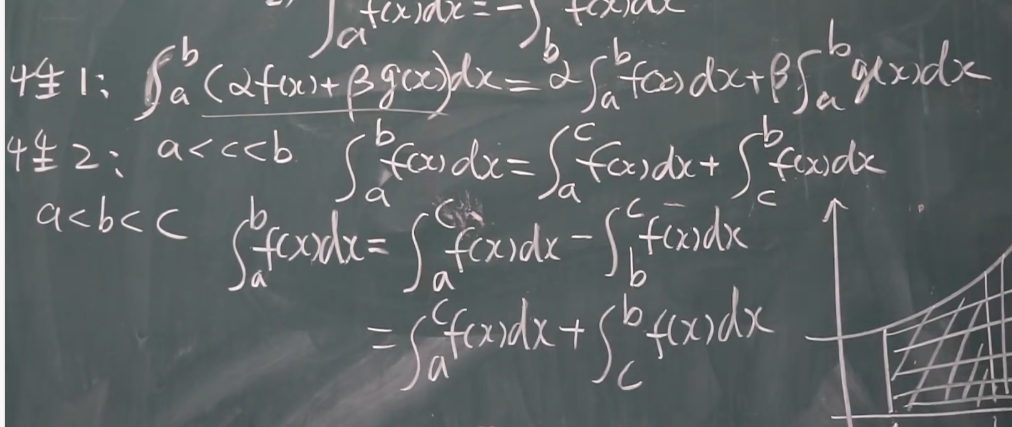 ∫_a f(x)dx = -∫_b f(x)dx
性1: ∫_a^b (αf(x)+βg(x))dx = α∫_a^b f(x)dx + β∫_a^b g(x)dx
性2: a<c<b ∫_a^b f(x)dx = ∫_a^c f(x)dx + ∫_c^b f(x)dx
a<b<c ∫_a^b f(x)dx = ∫_a^c f(x)dx - ∫_b^c f(x)dx
= ∫_a^c f(x)dx + ∫_c^b f(x)dx